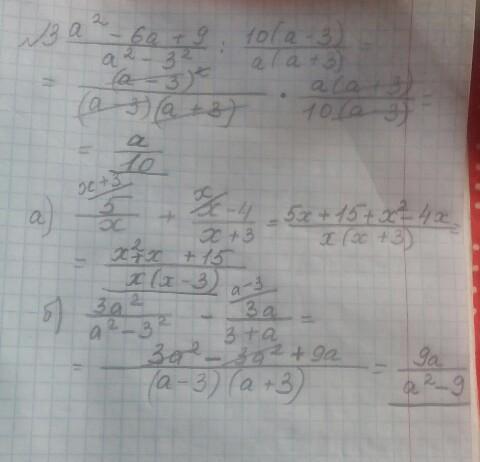 №3 (a² - 6a + 9)/(a² - 3²) : 10(a-3)/a(a+3) =
= (a-3)²/(a-3)(a+3) · a(a+3)/10(a-3) =
= a/10
а) x+3/ 5/x + x/ (x-4)/(x+3) = (5x+15+x²-4x)/x(x+3) =
= (x²+x +15)/x(x-3)
б) 3a²/(a²-3²) - a-3/ 3a/(3+a) =
= (3a² - 3a² + 9a)/(a-3)(a+3) = 9a/(a²-9)